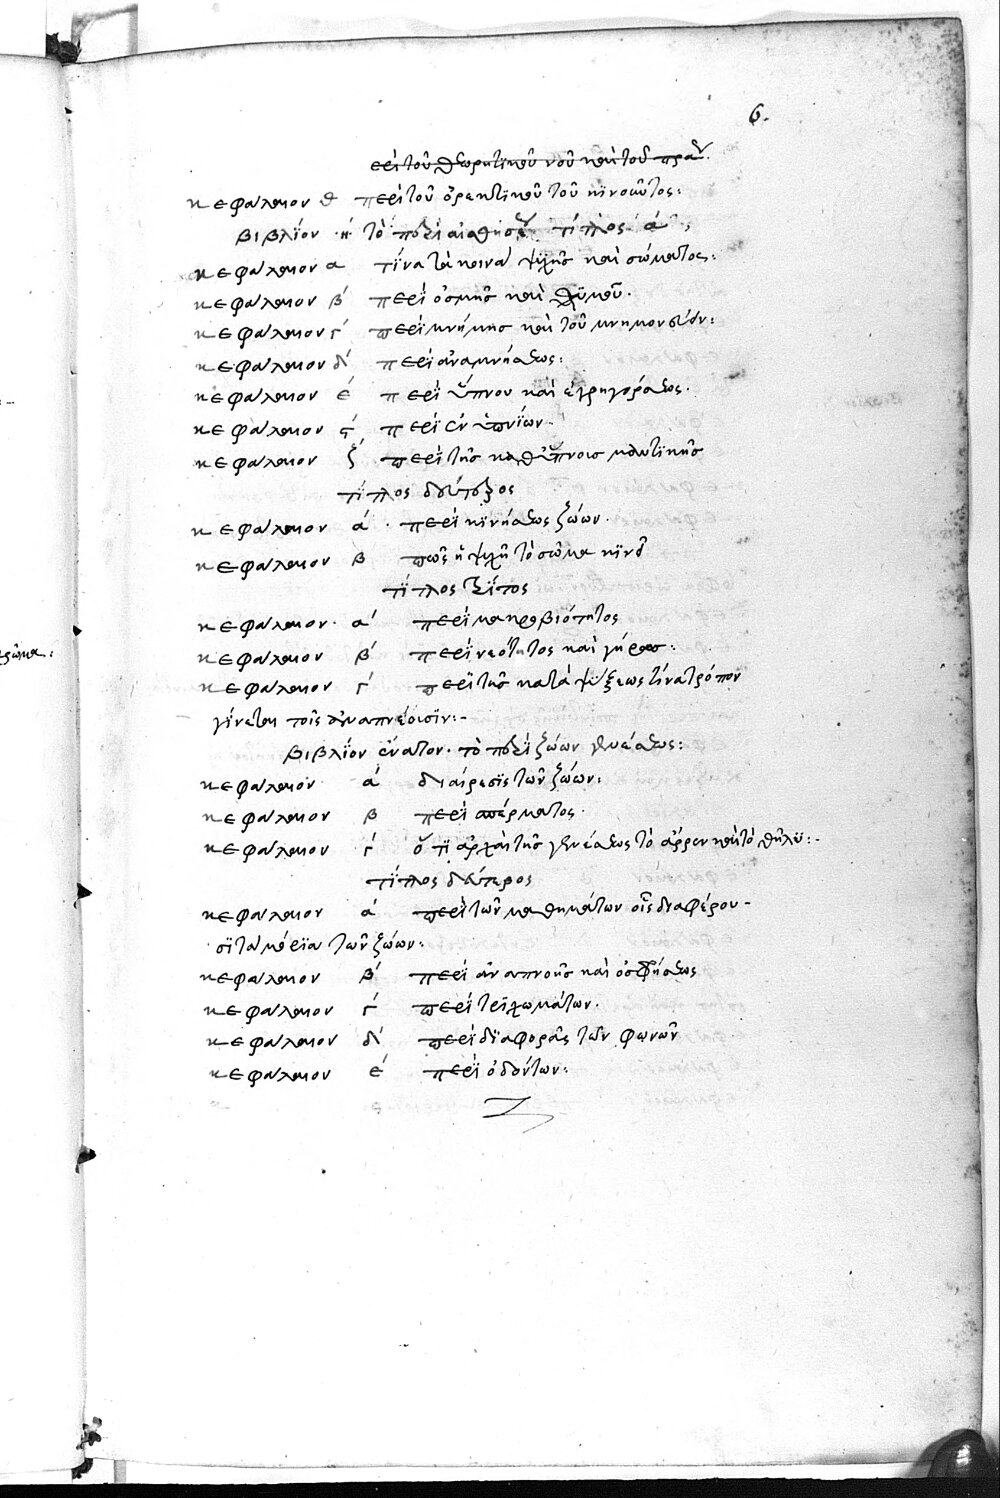 6.
περὶ τοῦ θεωρητικοῦ νοῦ καὶ τοῦ πρακ
κεφάλαιον θ περὶ τοῦ ὀρεκτικοῦ τοῦ κινοῦντος:
βιβλίον η΄ τὸ περὶ αἰσθήσε τίτλος α΄
κεφάλαιον α τίνα τὰ κοινὰ ψυχῆς καὶ σώματος:
κεφάλαιον β΄ περὶ ὀσμῆς καὶ χυμοῦ.
κεφάλαιον γ΄ περὶ μνήμης καὶ τοῦ μνημονεύειν:
κεφάλαιον δ΄ περὶ ἀναμνήσεως:
κεφάλαιον ε΄ περὶ ὕπνου καὶ ἐγρηγόρσεως.
κεφάλαιον ϛ΄ περὶ ἐνυπνίων.
κεφάλαιον ζ΄ περὶ τῆς καθ' ὕπνοις μαντικῆς
τίτλος δεύτερος
κεφάλαιον α΄. περὶ κινήσεως ζώων.
κεφάλαιον β πῶς ἡ ψυχὴ τὸ σῶμα κινεῖ
τίτλος τρίτος
κεφάλαιον. α΄ περὶ μακροβιότητος
κεφάλαιον β΄ περὶ νεότητος καὶ γήρως:
κεφάλαιον γ΄ περὶ τῆς κατὰ ψύξεως τίνα τρόπον
γίνεται τοῖς ἀναπνέουσιν:-
βιβλίον ἔνατον. τὸ περὶ ζώων γενέσεως:
κεφάλαιον α΄ διαίρεσις τῶν ζώων:
κεφάλαιον β περὶ σπέρματος.
κεφάλαιον γ΄ ὅτι ἀρχαὶ τῆς γενέσεως τὸ ἄρρεν καὶ τὸ θῆλυ:-
τίτλος δεύτερος
κεφάλαιον α΄ περὶ τῶν παθημάτων οἷς διαφέρου-
σι τὰ μόρια τῶν ζώων:
κεφάλαιον β΄ περὶ ἀναπνοῆς καὶ ὀσφρήσεως
κεφάλαιον γ΄ περὶ τριχωμάτων.
κεφάλαιον δ΄ περὶ διαφορᾶς τῶν φωνῶν
κεφάλαιον ε΄ περὶ ὀδόντων: